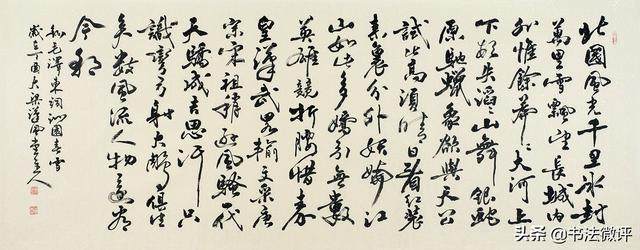 北國風光千里冰封
萬里雪飄望長城内
外惟餘莽々大河上
下頓失滔々山舞銀蛇
原馳蠟象欲與天公
試比高須晴日看紅裝
素裹分外妖嬈江
山如此多嬌引無數
英雄競折腰惜秦
皇漢武略輸文采唐
宗宋祖稍遜風騷一代
天驕成吉思汗只
識彎弓射大鵰俱往
矣數風流人物還看
今朝
毛澤東詞沁園春雪
大梁 風堂主人
头条 @书法微评